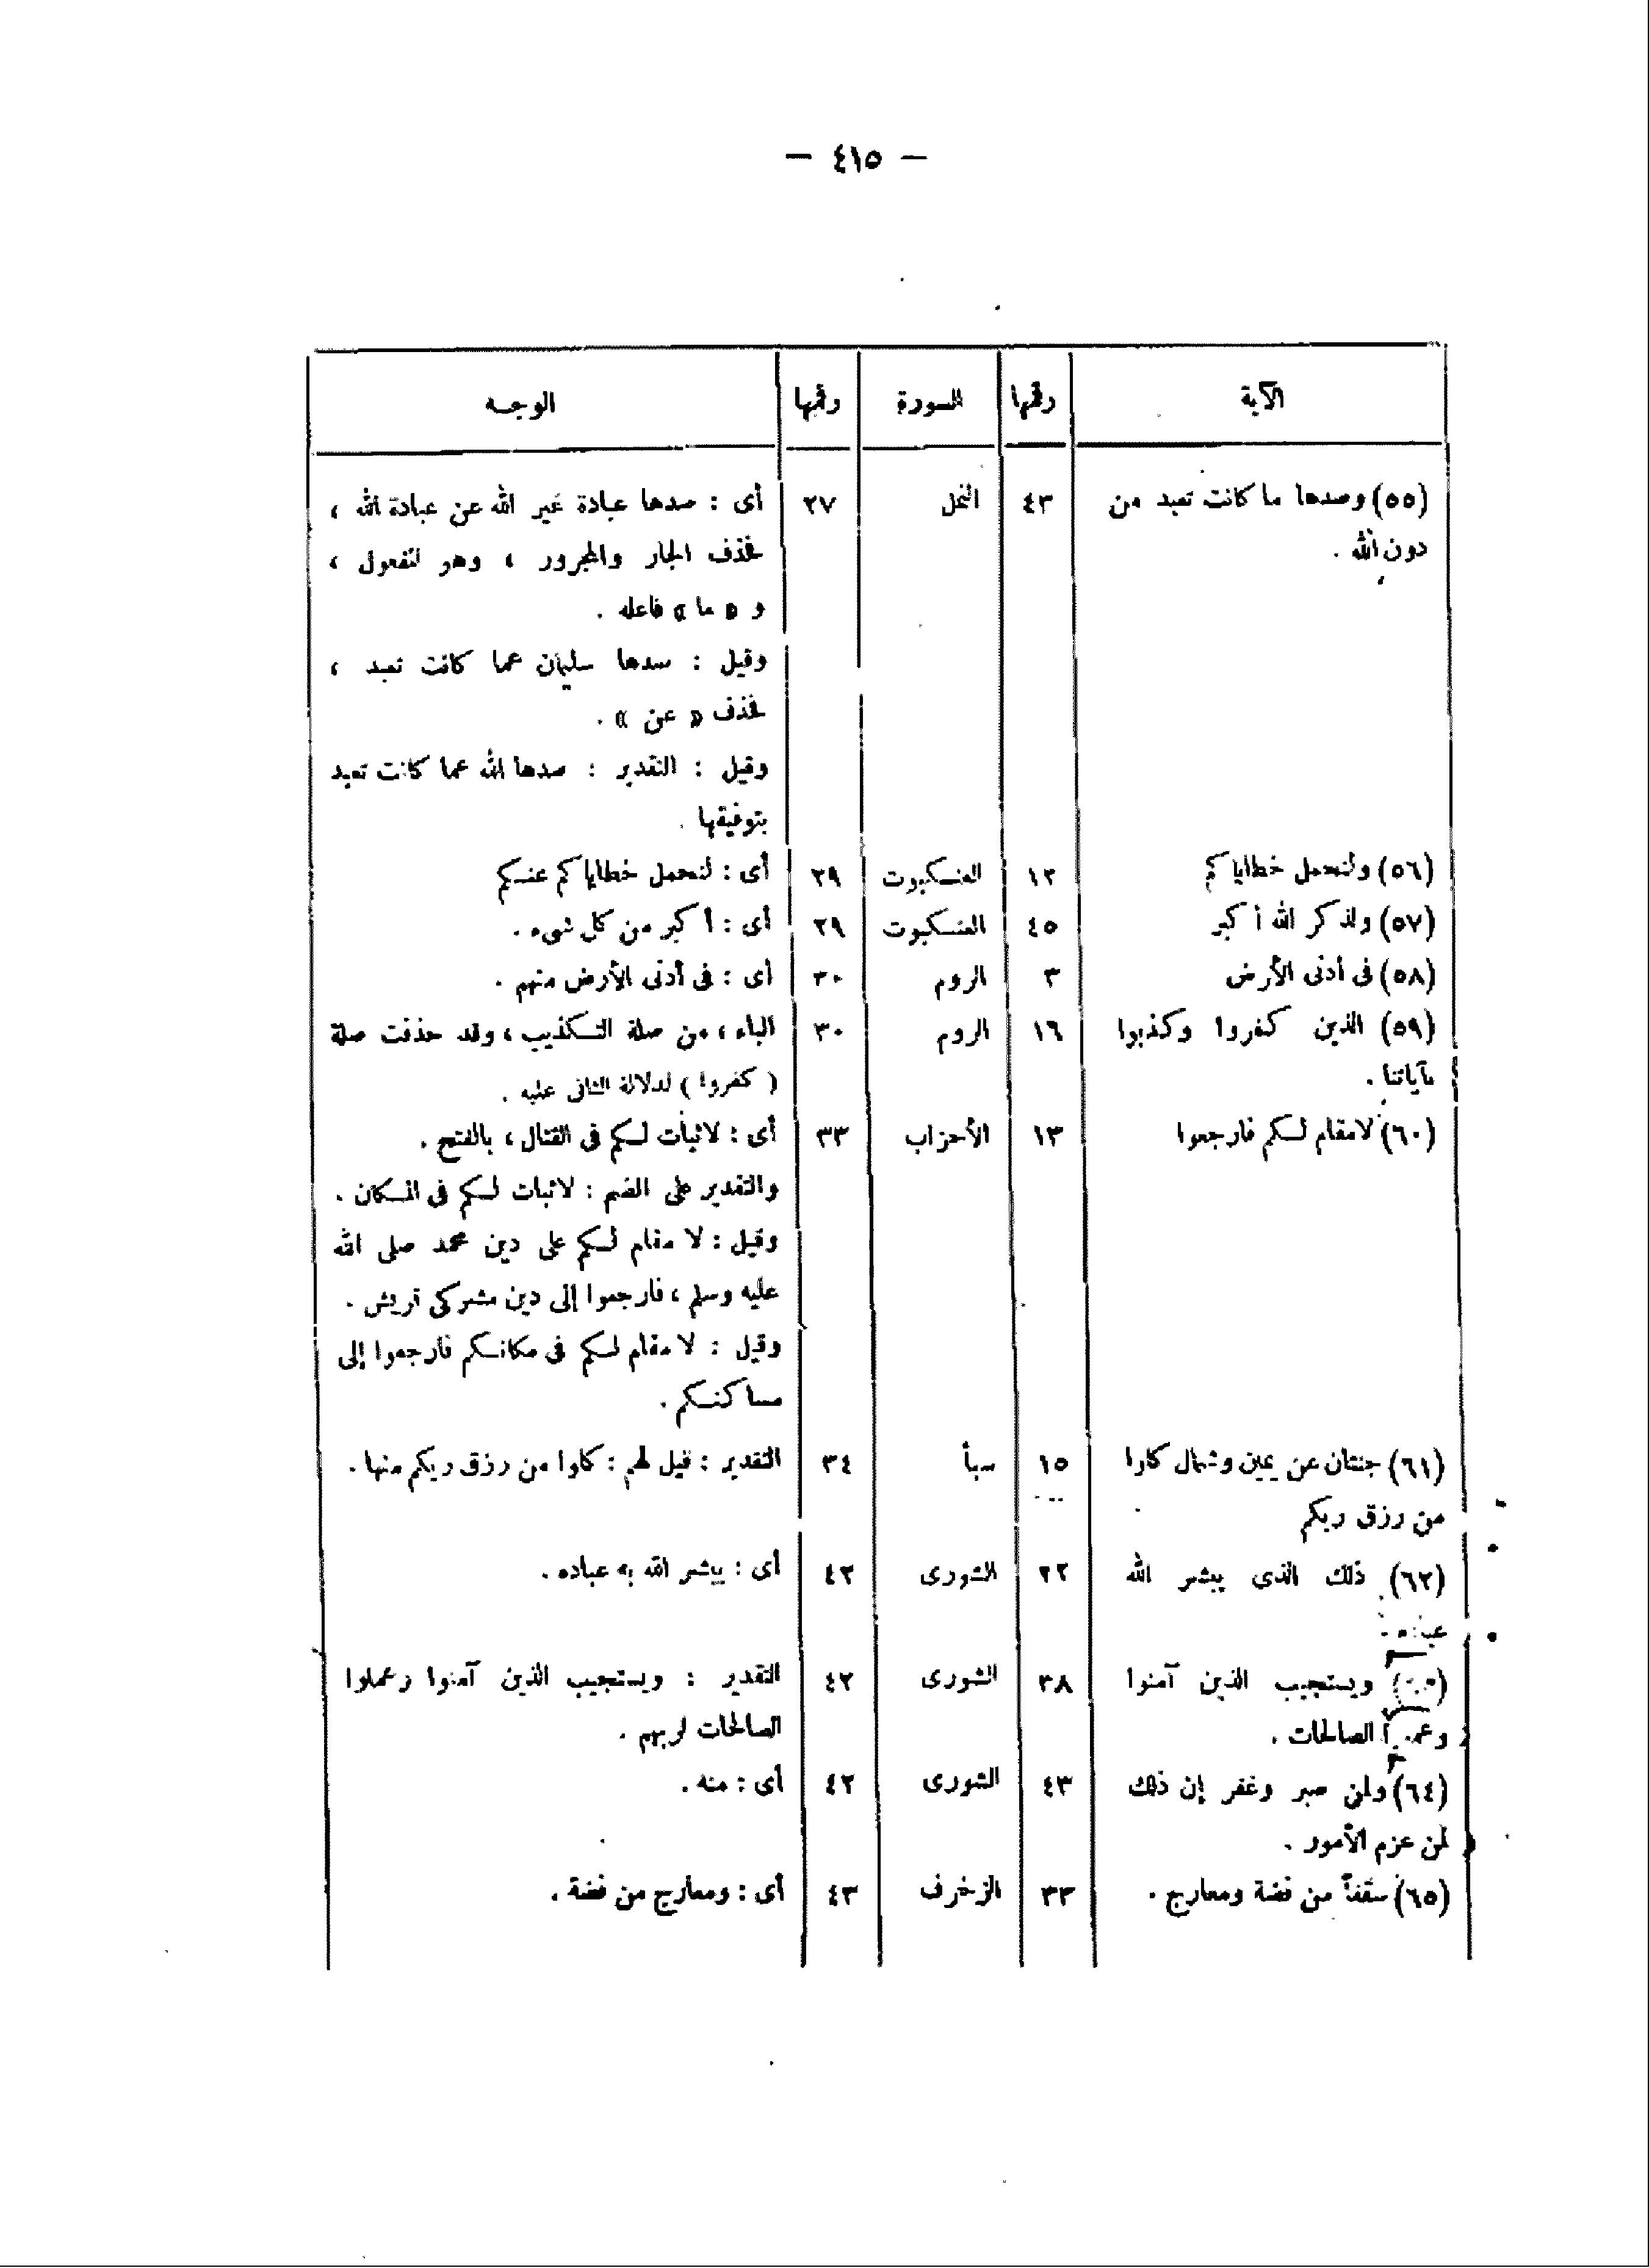 — ٤١٥ —
الآية رقمها السورة رقمها الوجه
(٥٥) وصدها ما كانت تعبد من ٤٣ النمل ٢٧ أى : صدها عبادة غير الله عن عبادة الله ،
دون الله . فحذف الجار والمجرور ، وهو المفعول ،
و « ما » فاعله .
وقيل : صدها سليمان عما كانت تعبد ،
فحذف « عن » .
وقيل : التقدير : صدها الله عما كانت تعبد
بتوفيقها .
(٥٦) ولنحمل خطاياكم ١٢ العنكبوت ٢٩ أى : لنحمل خطاياكم عنكم
(٥٧) ولذكر الله أكبر ٤٥ العنكبوت ٢٩ أى : أكبر من كل شىء .
(٥٨) فى أدنى الأرض ٣ الروم ٣٠ أى : فى أدنى الأرض منهم .
(٥٩) الذين كفروا وكذبوا ١٦ الروم ٣٠ الباء ، من صلة التكذيب ، وقد حذفت صلة
بآياتنا . ( كفروا ) لدلالة الثانى عليه .
(٦٠) لا مقام لكم فارجعوا ١٣ الأحزاب ٣٣ أى : لا ثبات لكم فى القتال ، بالفتح .
والتقدير على الضم : لا ثبات لكم فى المكان .
وقيل : لا مقام لكم على دين محمد صلى الله
عليه وسلم ، فارجعوا إلى دين مشركى قريش .
وقيل : لا مقام لكم فى مكانكم فارجعوا إلى
مساكنكم .
(٦١) جنتان عن يمين وشمال كلوا ١٥ سبأ ٣٤ التقدير : قيل لهم : كلوا من رزق ربكم منها .
من رزق ربكم
(٦٢) ذلك الذى يبشر الله ٢٢ الشورى ٤٢ أى : يبشر الله به عباده .
ويستجيب الذين آمنوا ٣٨ الشورى ٤٢ التقدير : ويستجيب الذين آمنوا وعملوا
الصالحات . الصالحات لربهم .
(٦٤) ولمن صبر وغفر إن ذلك ٤٣ الشورى ٤٢ أى : منه .
لمن عزم الأمور .
(٦٥) سقفاً من فضة ومعارج . ٣٣ الزخرف ٤٣ أى : ومعارج من فضة .